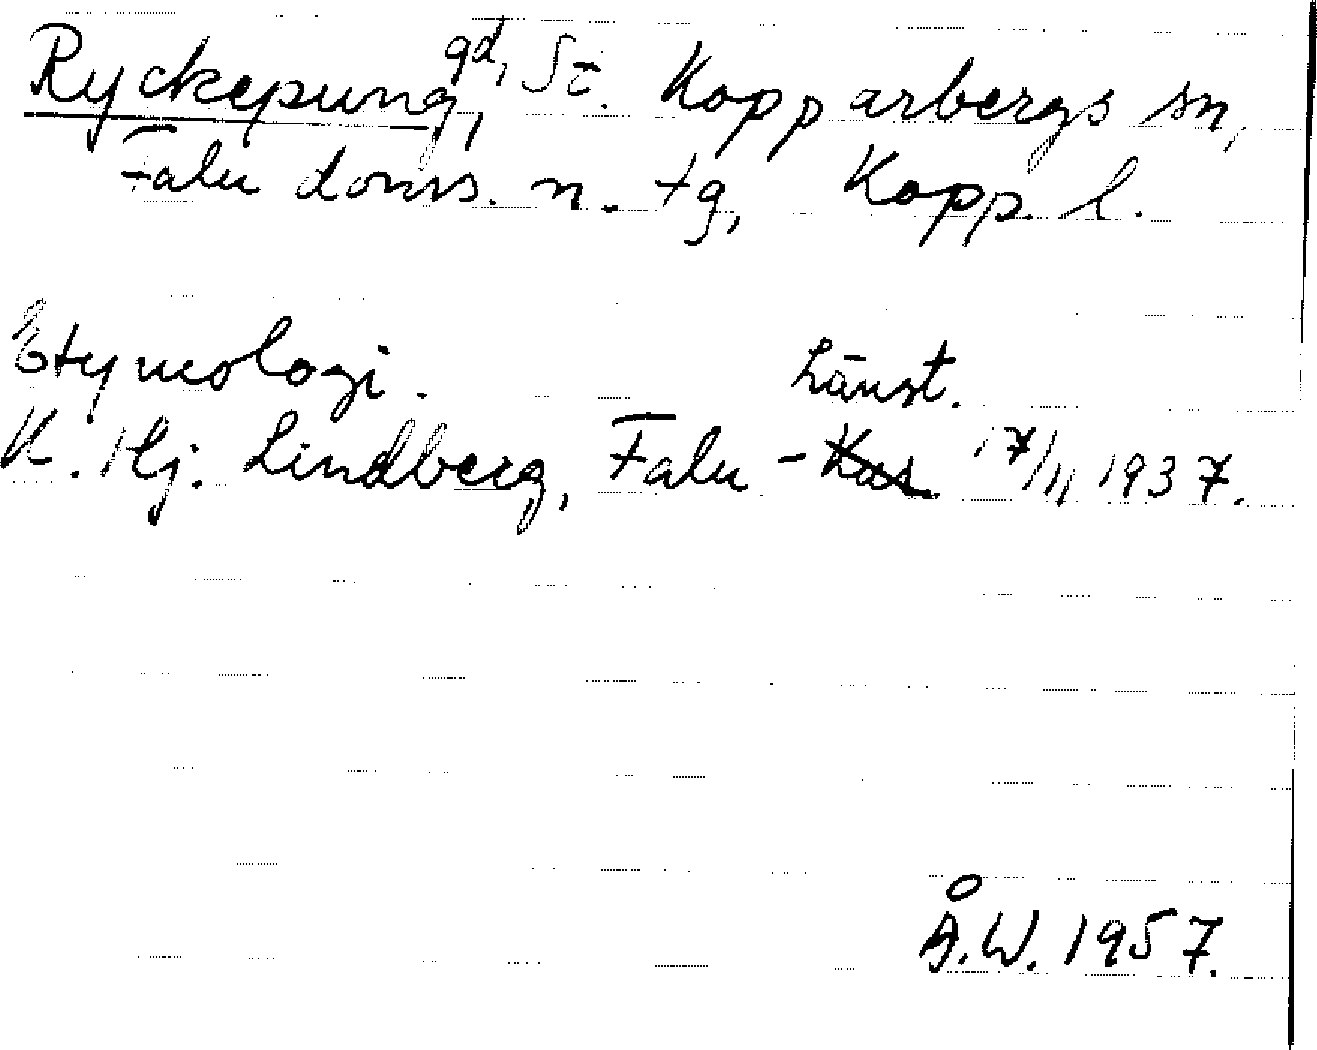 Ryckepung, gd, St. Kopparbergs sn,
Falu doms. n. tg, Kopp. l.
Etymologi.
K. Hj. Lindberg, Falu - Kur. 17/11 1937.
Länst.
Å.W. 1957.